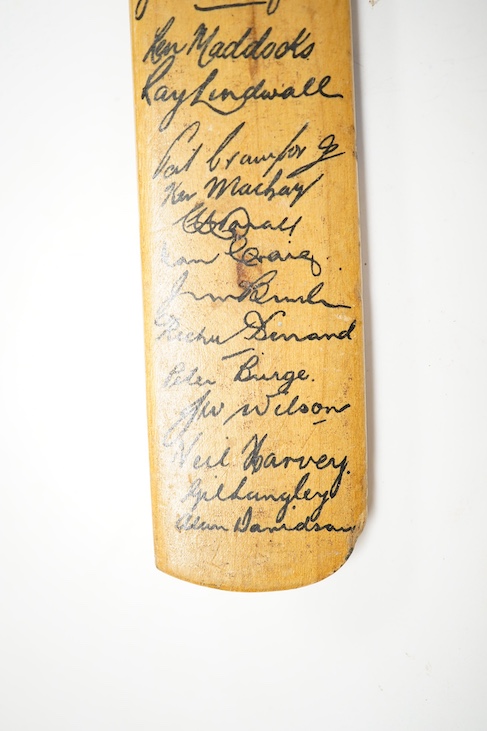 Len Maddocks
Ray Lindwall
Pat Crawford
Ken Mackay
Ian Craig.
Richie Benaud
Peter Burge.
J W Wilson
Neil Harvey.
Gil Langley
Alan Davidson